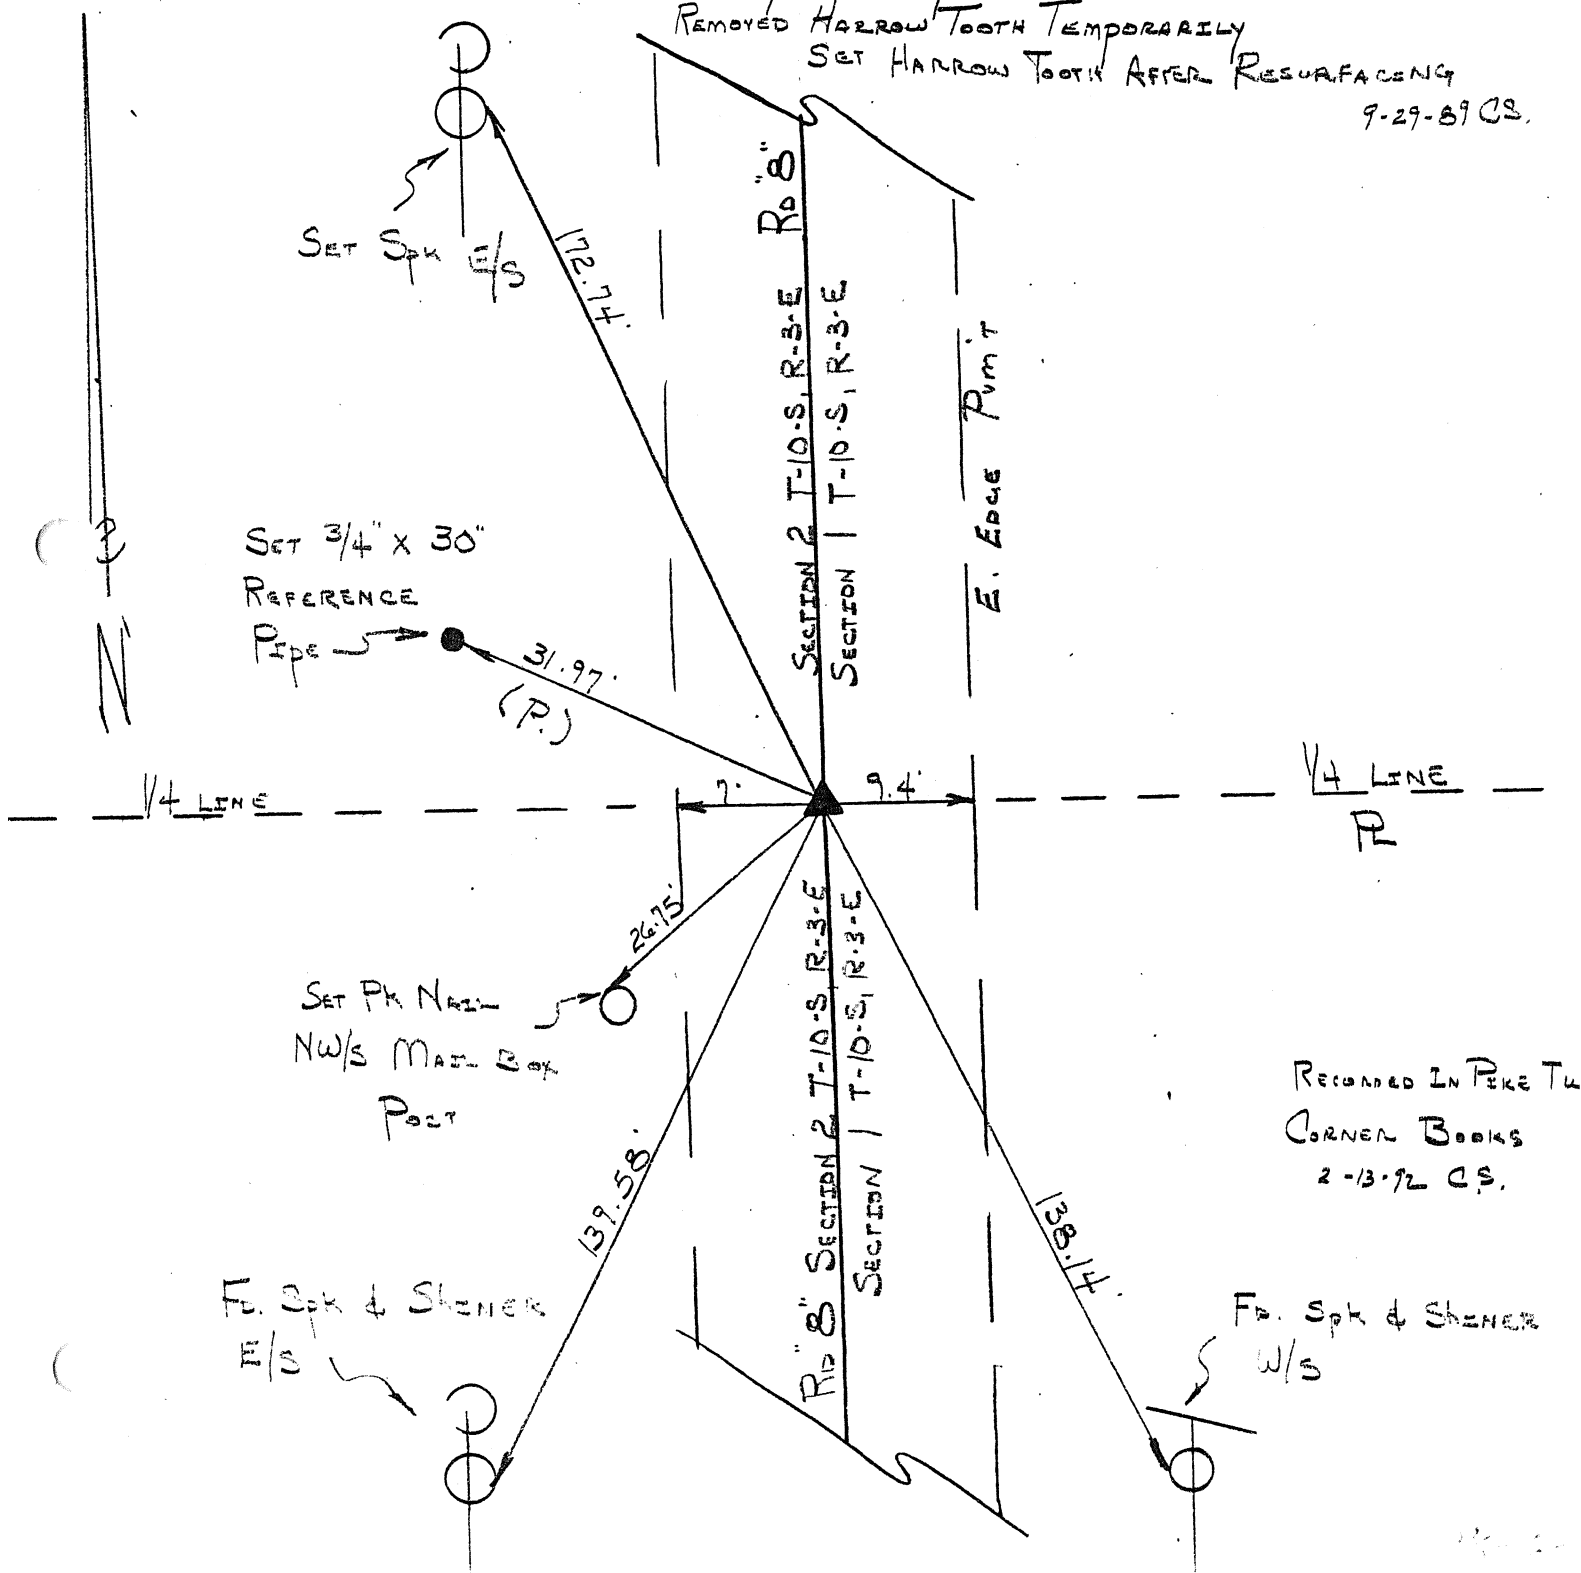 Removed Harrow Tooth Temporarily
Set Harrow Tooth After Resurfacing
9-29-89 CS.
Rd "8"
Set Spk E/S
172.74'
Section 2 T-10-S, R-3-E
Section 1 T-10-S, R-3-E
E. Edge Pvm't
N
Set 3/4" x 30"
Reference
Pipe
31.97'
(P.)
1/4 Line
7'
9.4'
1/4 Line
PL
26.75'
Set Pk Nail
NW/S Mail Box
Post
Rd "8" Section 2 T-10-S R-3-E
Section 1 T-10-S, R-3-E
Recorded In Pike
Corner Books
2-13-92 CS.
139.58'
138.14'
Fd. Spk & Shiner
E/S
Fd. Spk & Shiner
W/S